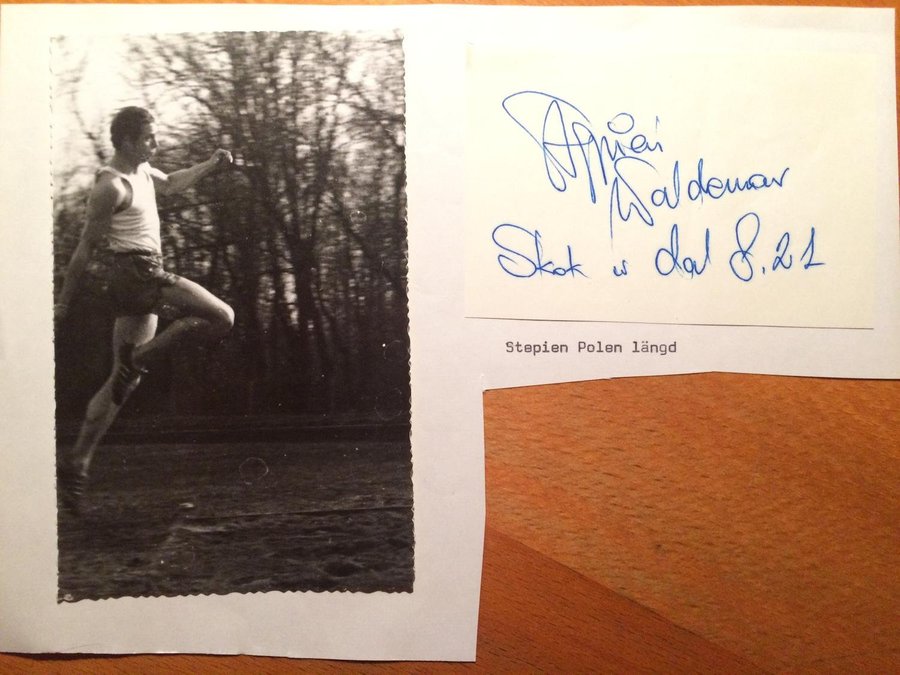 Stępień
Waldemar
Skok w dal 8.21
Stepien Polen längd